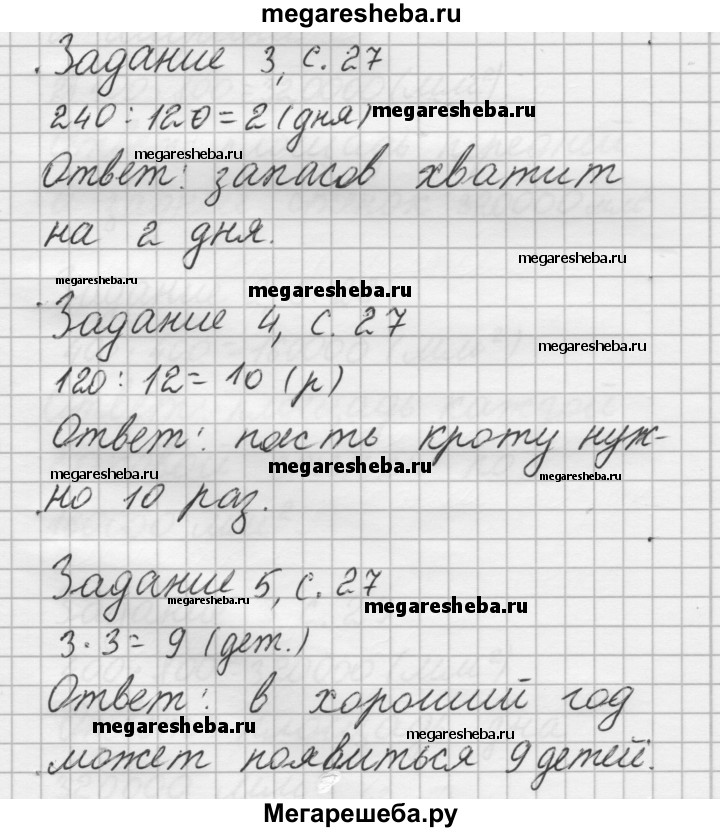 megaresheba.ru
Задание 3, с. 27
240 : 120 = 2 (дня) megaresheba.ru
megaresheba.ru
Ответ: запасов хватит
на 2 дня.
megaresheba.ru megaresheba.ru megaresheba.ru
Задание 4, с. 27
megaresheba.ru
120 : 12 = 10 (р)
Ответ: поесть кроту нуж-
megaresheba.ru megaresheba.ru megaresheba.ru
но 10 раз.
Задание 5, с. 27
megaresheba.ru megaresheba.ru
3 · 3 = 9 (дет.)
Ответ: в хороший год
megaresheba.ru megaresheba.ru
может появиться 9 детей.
Мегарешеба.ру